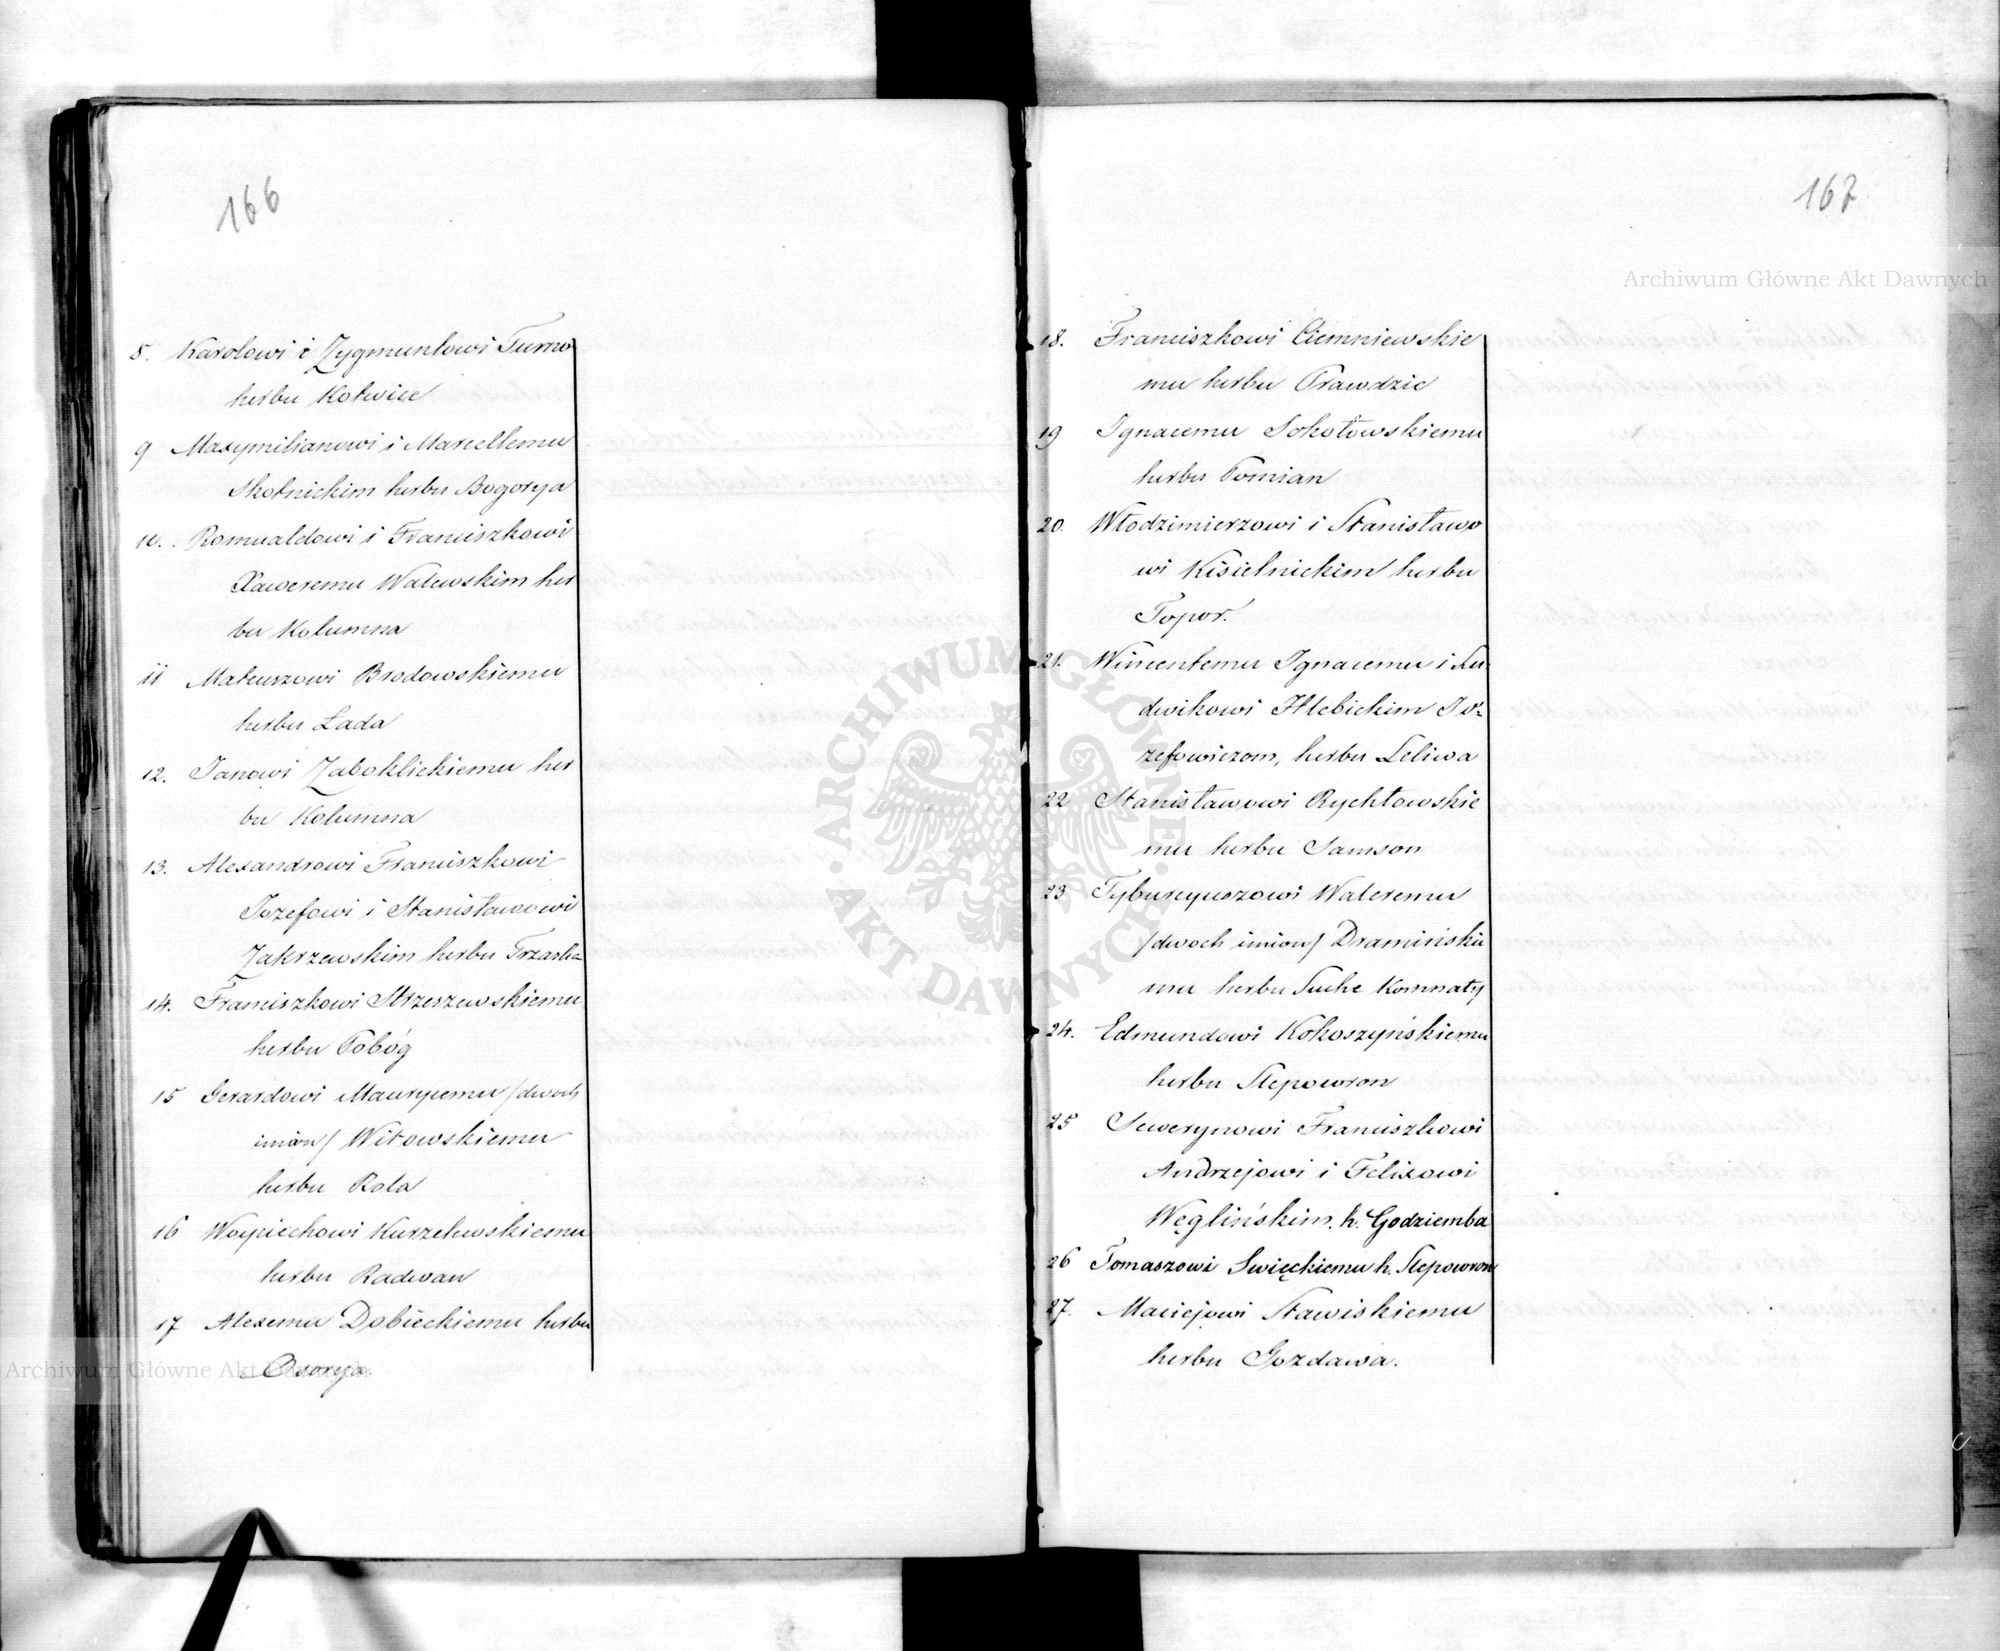 166
8. Karolowi i Zygmuntowi Turno
herbu Kotwice
9 Maxymilianowi i Marcellemu
Skotnickim herbu Bogorya
10. Romualdowi i Franciszkowi
Xaweremu Walewskim her
bu Kolumna
11 Mateuszowi Brodowskiemu
herbu Łada
12. Janowi Zaboklickiemu her
bu Kolumna
13. Alexandrowi Franciszkowi
Jozefowi i Stanisławowi
Zakrzewskim herbu Trzaska
14. Franciszkowi Strzeszewskiemu
herbu Pobóg
15 Gerardowi Maurycemu /dwoch
imion/ Witowskiemu
herbu Rola
16 Woyciechowi Kurzelewskiemu
herbu Radwan
17 Alexemu Dobieckiemu herbu
Ossorya.
167
18. Franciszkowi Ciemniewskie
mu herbu Prawdzic
19 Ignacemu Sokołowskiemu
herbu Pomian
20. Włodzimierzowi i Stanisławo
wi Kisielnickim herbu
Topor.
21. Wincentemu Ignacemu i Lu-
dwikowi Hlebickim Jo-
zefowiczom, herbu Leliwa
22 Stanisławowi Rychłowskie
mu herbu Samson
23 Tyburcyuszowi Waleremu
/dwoch imion/ Dramińskie
mu herbu Suche Komnaty
24. Edmundowi Kokoszyńskiemu
herbu Slepowron
25 Sewerynowi Franciszkowi
Andrzejowi i Felixowi
Węglińskim. h. Godziemba
26 Tomaszowi Swięckiemu h. Slepowron
27. Maciejowi Stawiskiemu
herbu Gozdawa.
Archiwum Główne Akt Dawnych
Archiwum Główne Akt Dawnych
ARCHIWUM GŁÓWNE AKT DAWNYCH